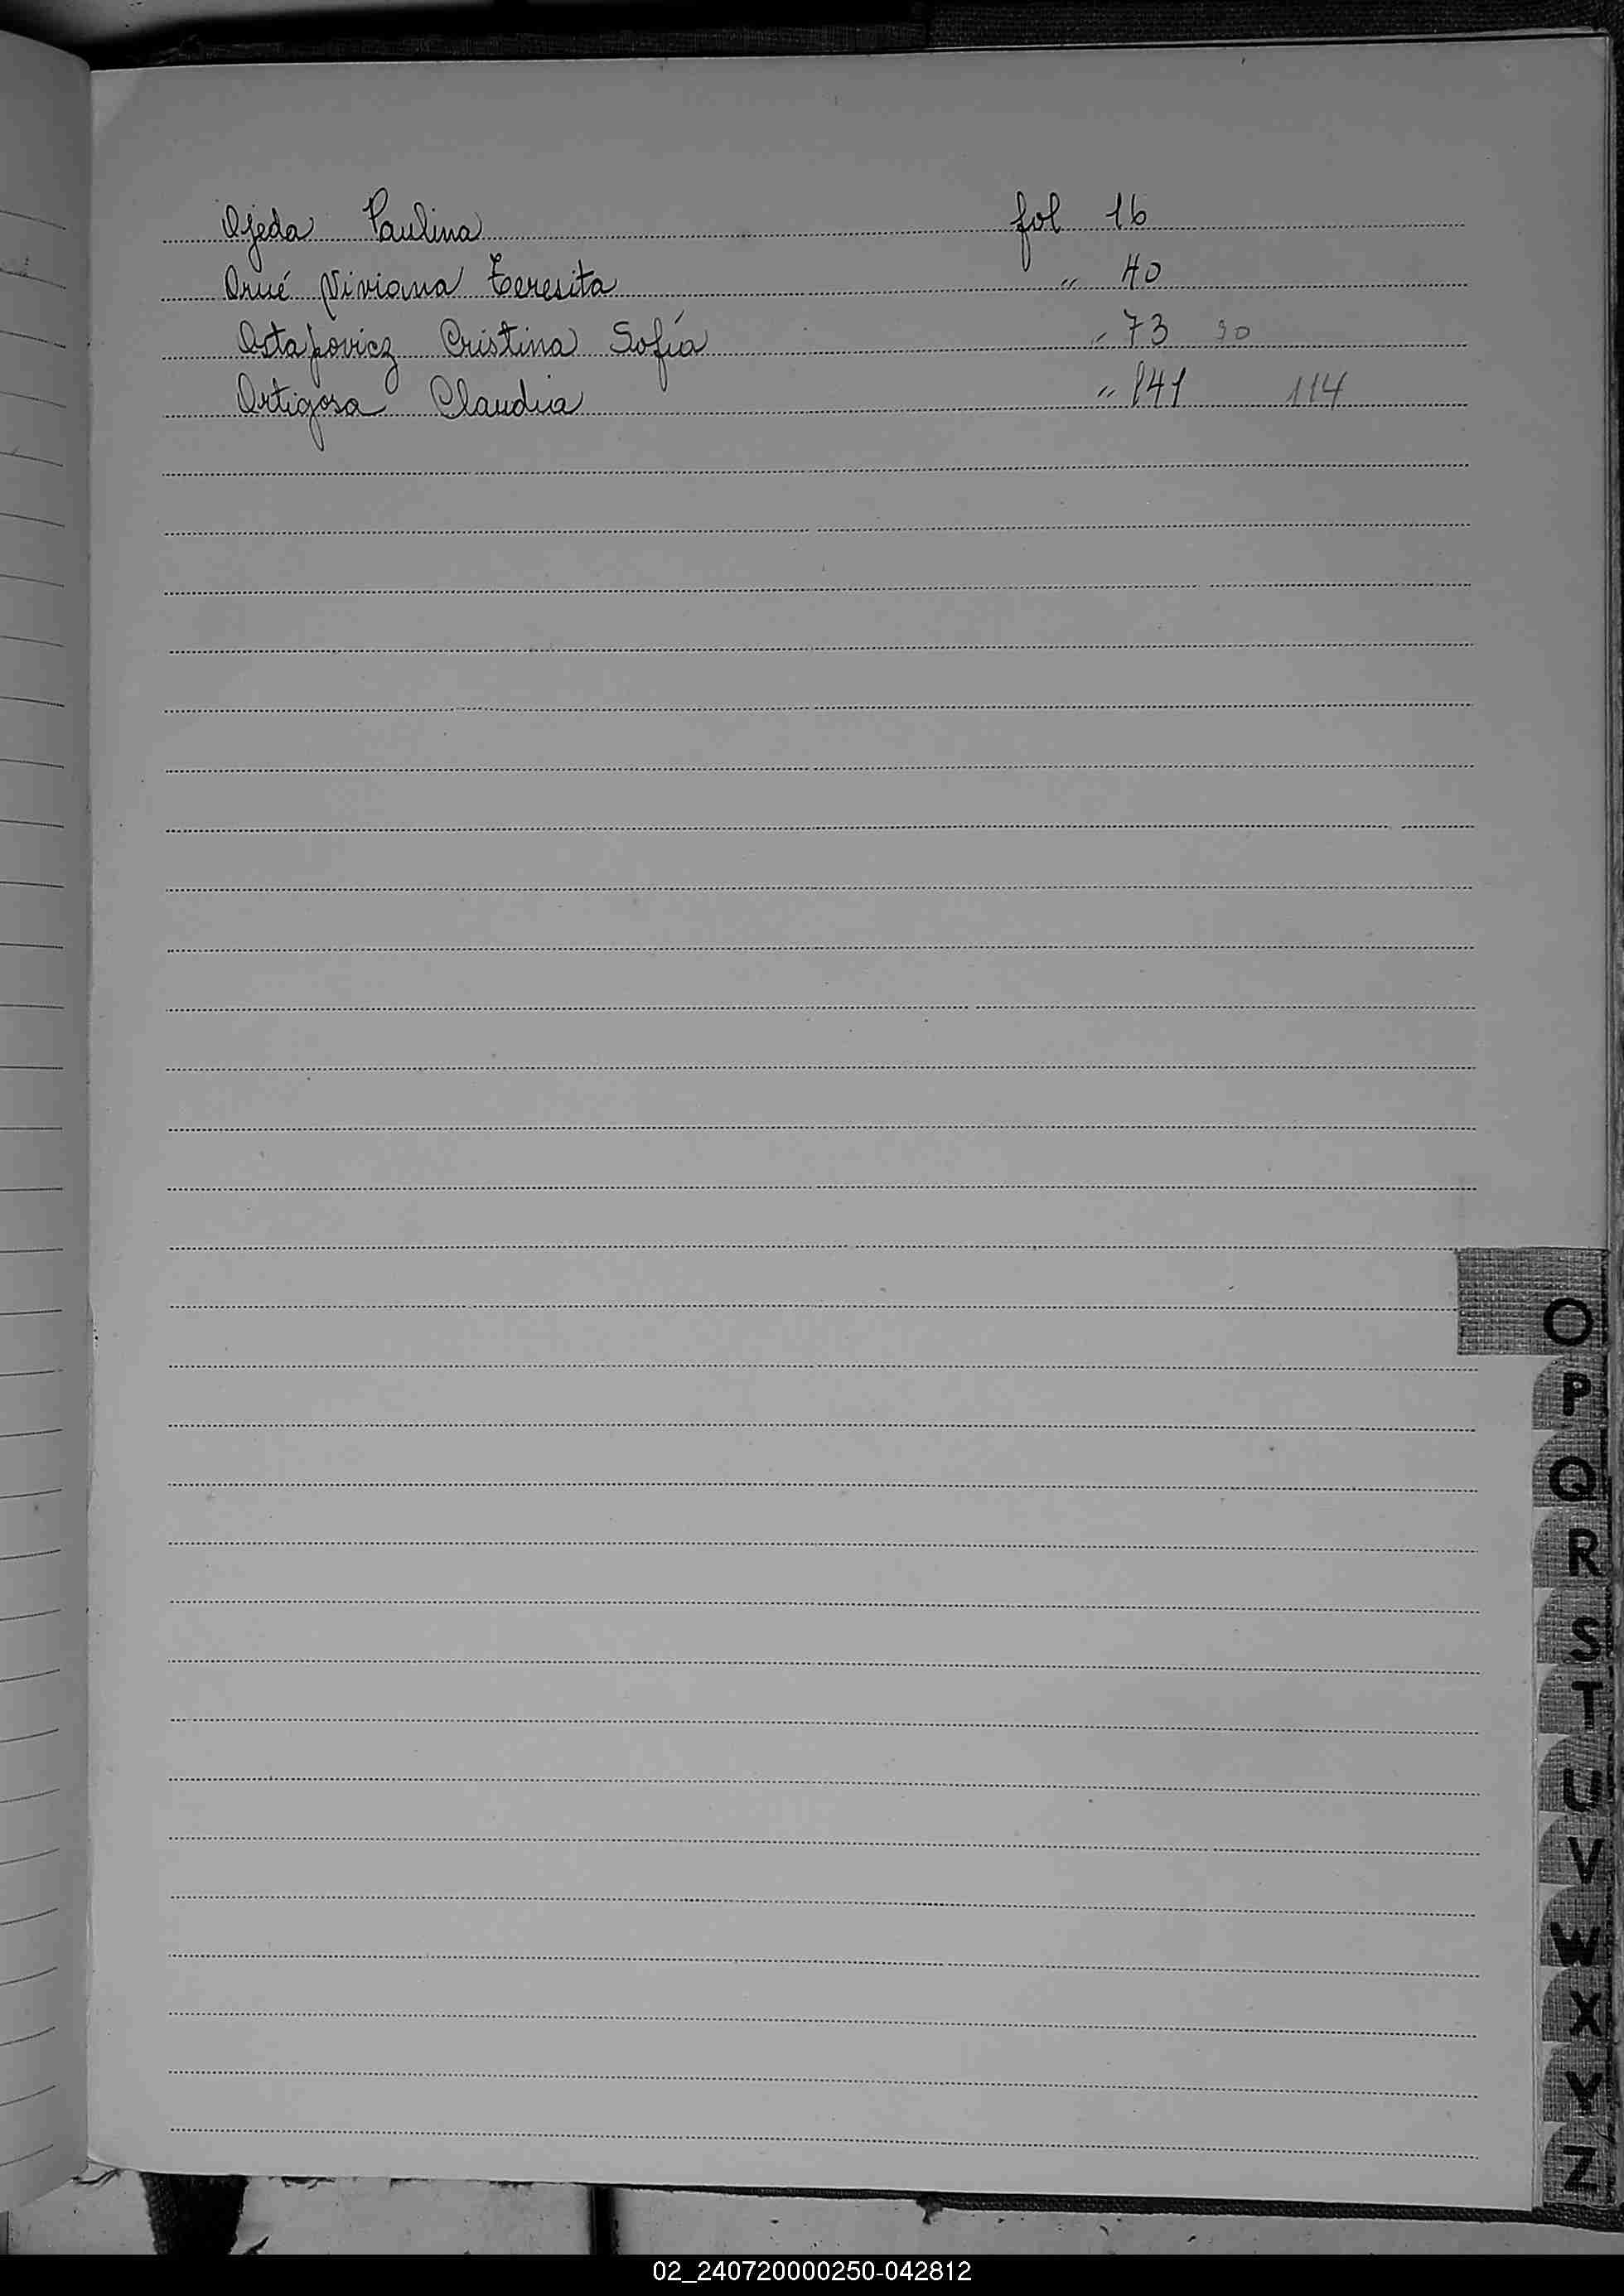 Ojeda Paulina fol 16
Orué Viviana Teresita " 40
Ostapovicz Cristina Sofía " 73 90
Ortigosa Claudia " 141 114
O
P
Q
R
S
T
U
V
W
X
Y
Z
02_240720000250-042812